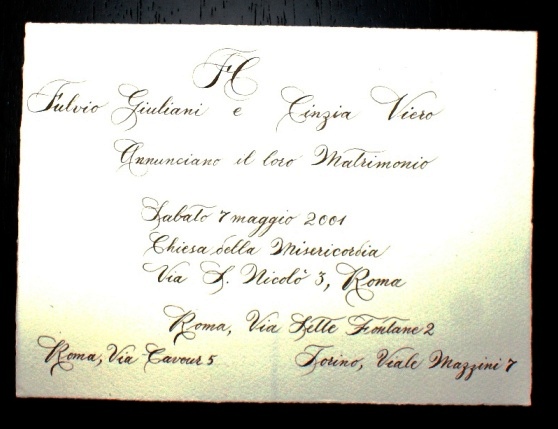 FC
Fulvio Giuliani e Cinzia Viero
Annunciano il loro Matrimonio
Sabato 7 maggio 2001
Chiesa della Misericordia
Via S. Nicolò 3, Roma
Roma, Via Sette Fontane 2
Roma, Via Cavour 5
Torino, Viale Mazzini 7